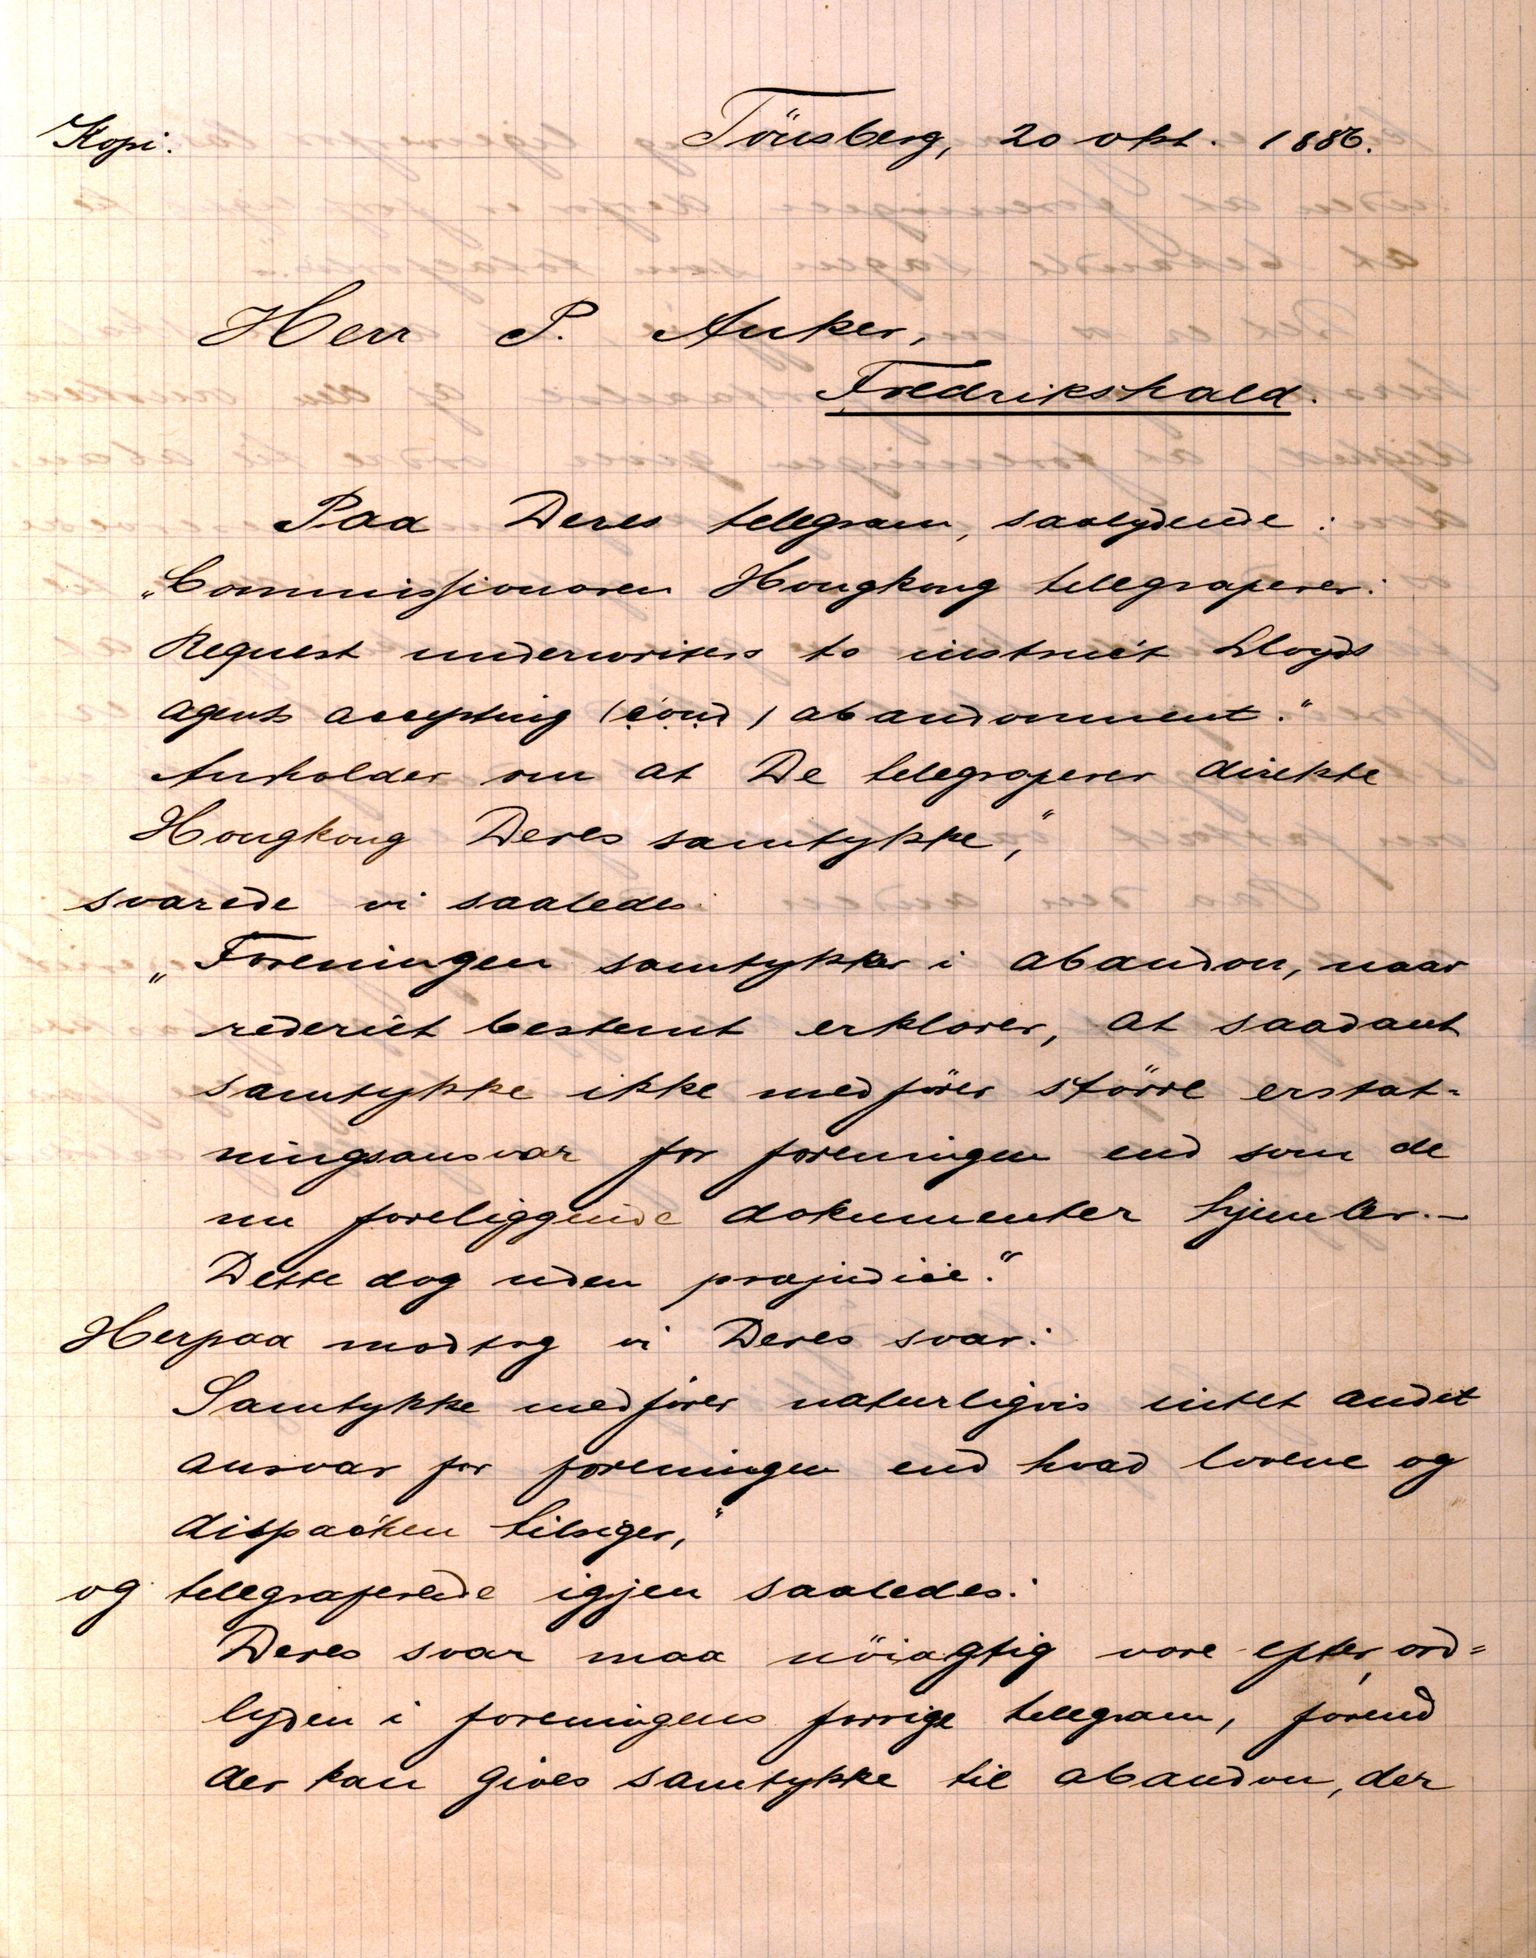 Kopi.
Tönsberg, 20 okt. 1886.
Herr P. Anker,
Fredrikshald.
Paa Deres telegram, saalydende:
„Commissionæren Hongkong telegraferer:
Request underwriters to instruct Lloyds
agents accepting (cond) abandonment.“
Anholder om at De telegraferer direkte
Hongkong Deres samtykke,“
svarede vi saaledes:
„Foreningen samtykker i abandon, naar
rederiet bestemt erklærer, at saadant
samtykke ikke medfører större erstat-
ningsansvar for foreningen end som de
nu foreliggende dokumenter hjemler.—
Dette dog uden præjudice.“
Herpaa modtog vi Deres svar:
Samtykke medfører naturligvis intet andet
ansvar for foreningen end hvad lovene og
dispachen tilsiger,“
og telegraferede igjen saaledes:
Deres svar maa nöiagtig være efter ord-
lyden i foreningens forrige telegram, førend
der kan gives samtykke til abandon, der